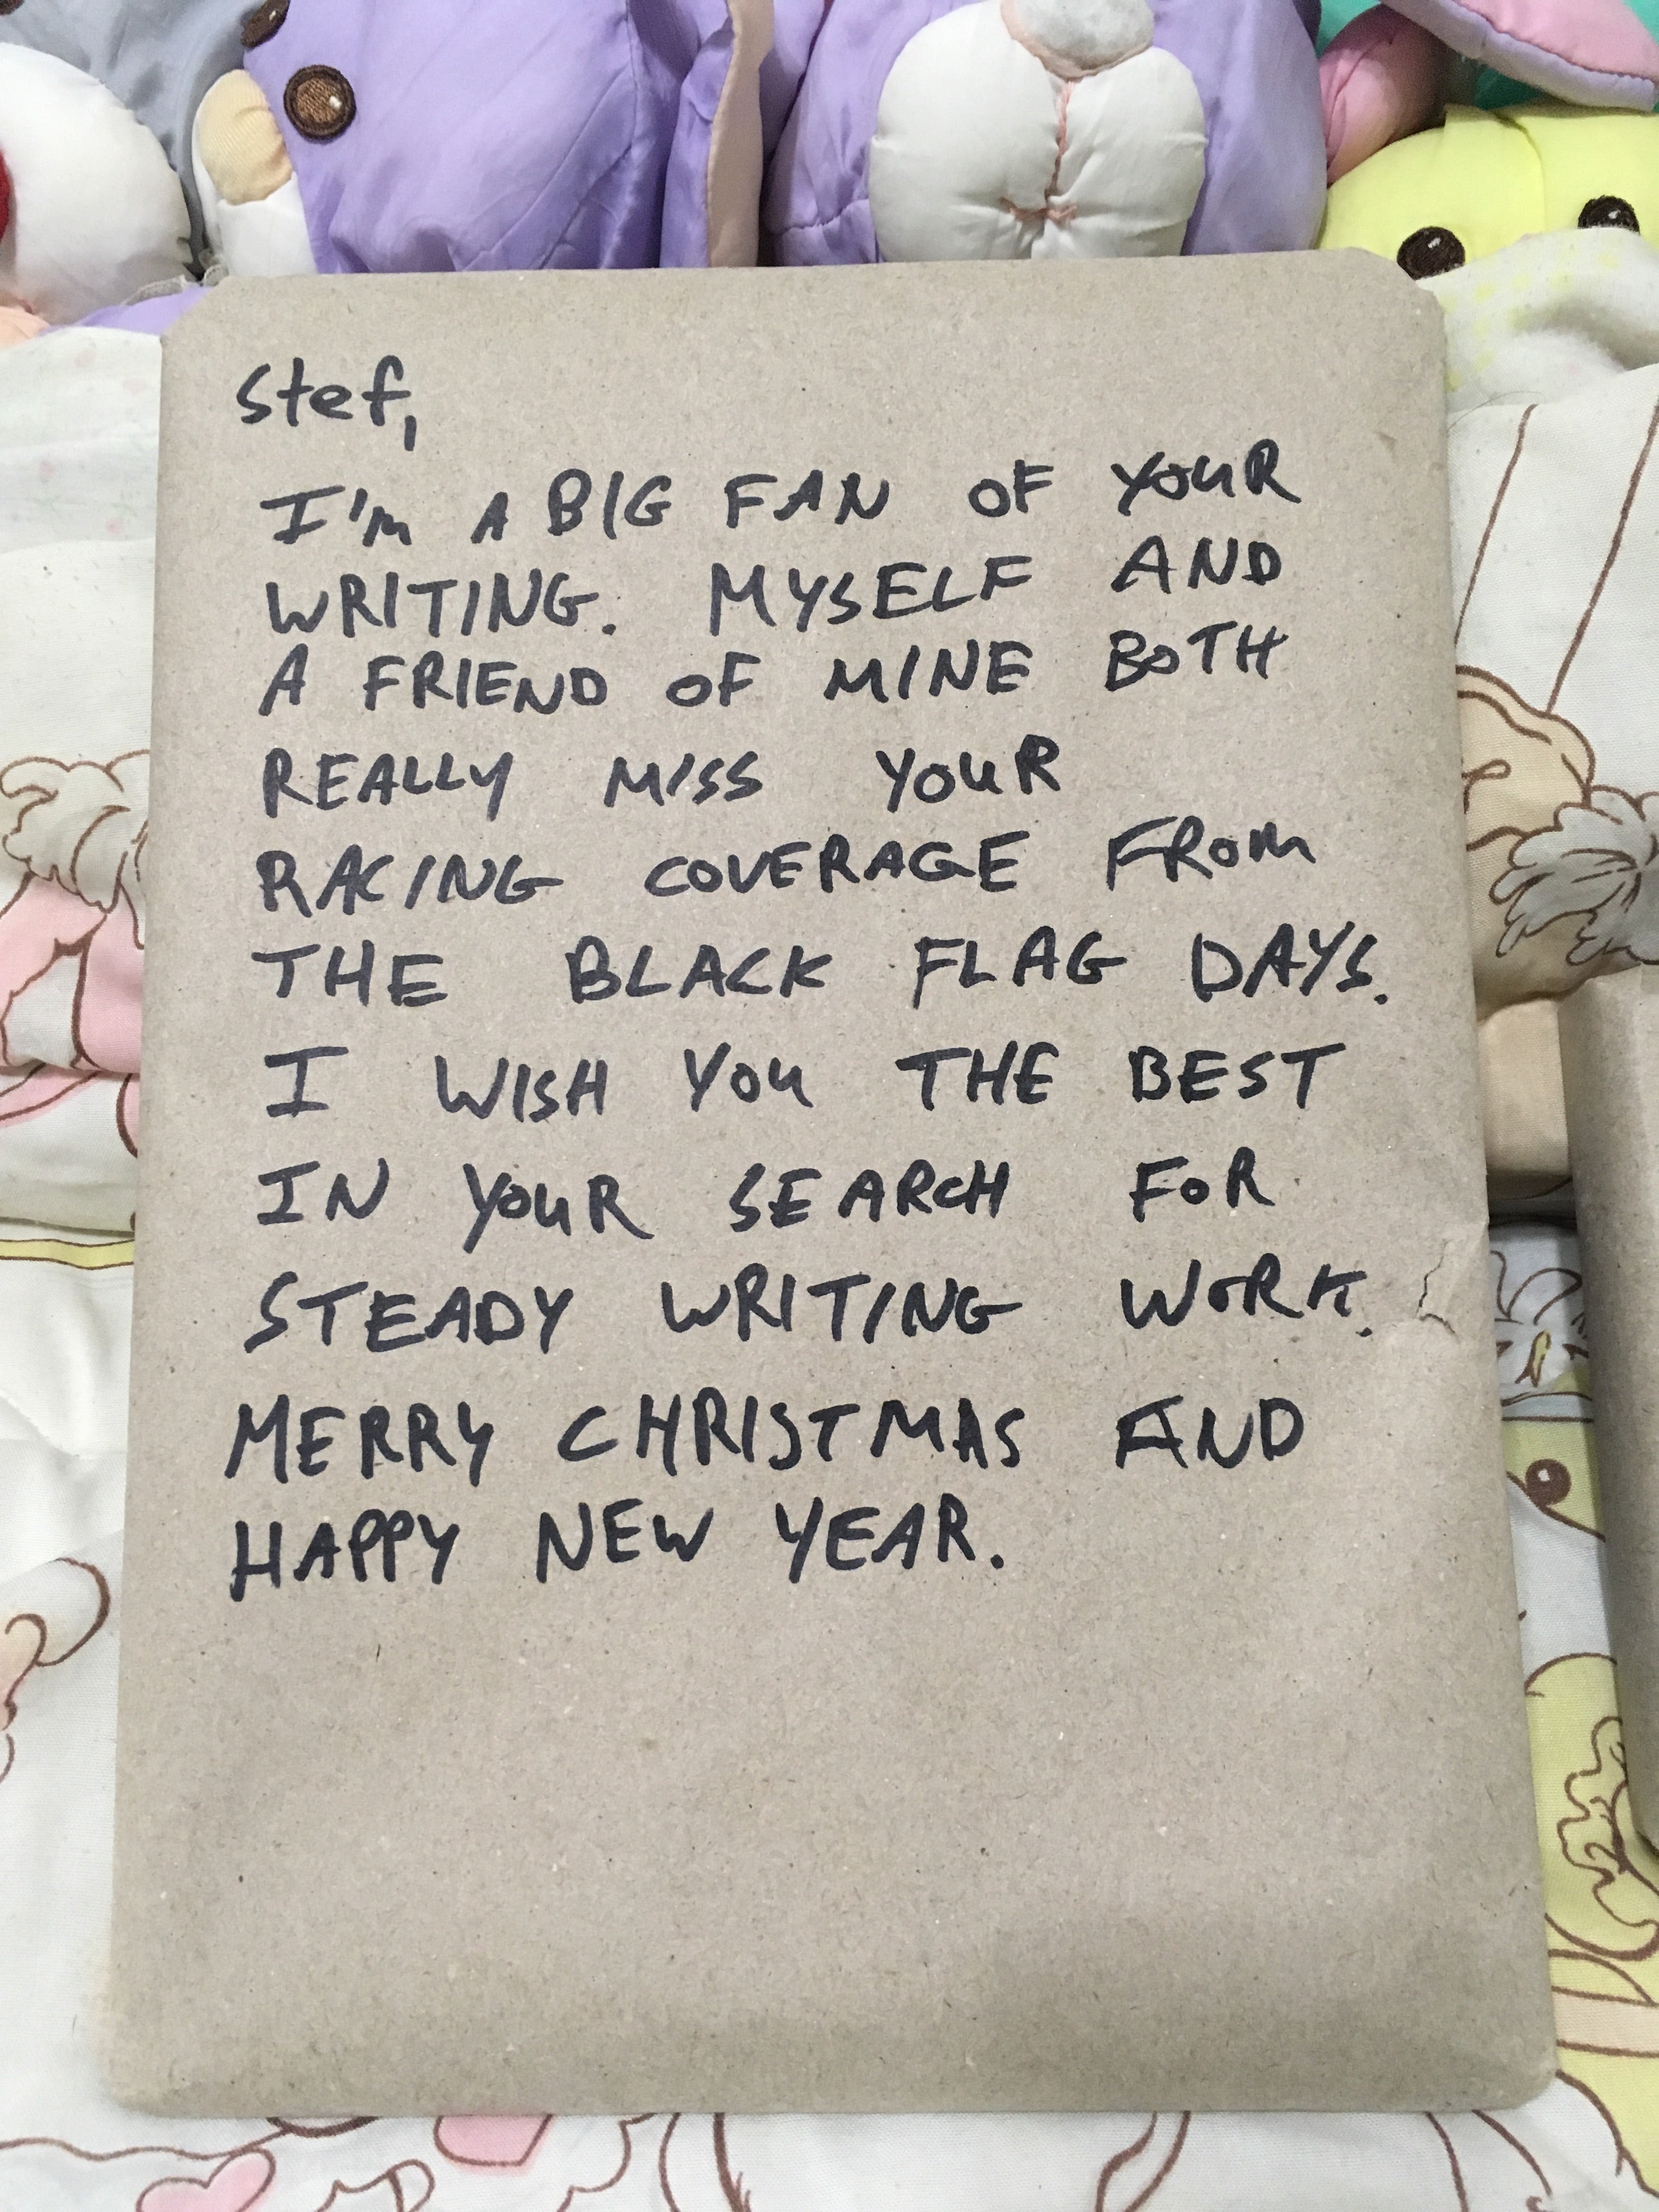 Stef,
I'm A BIG FAN OF YOUR
WRITING. MYSELF AND
A FRIEND OF MINE BOTH
REALLY MISS YOUR
RACING COVERAGE FROM
THE BLACK FLAG DAYS.
I WISH YOU THE BEST
IN YOUR SEARCH FOR
STEADY WRITING WORK.
MERRY CHRISTMAS AND
HAPPY NEW YEAR.